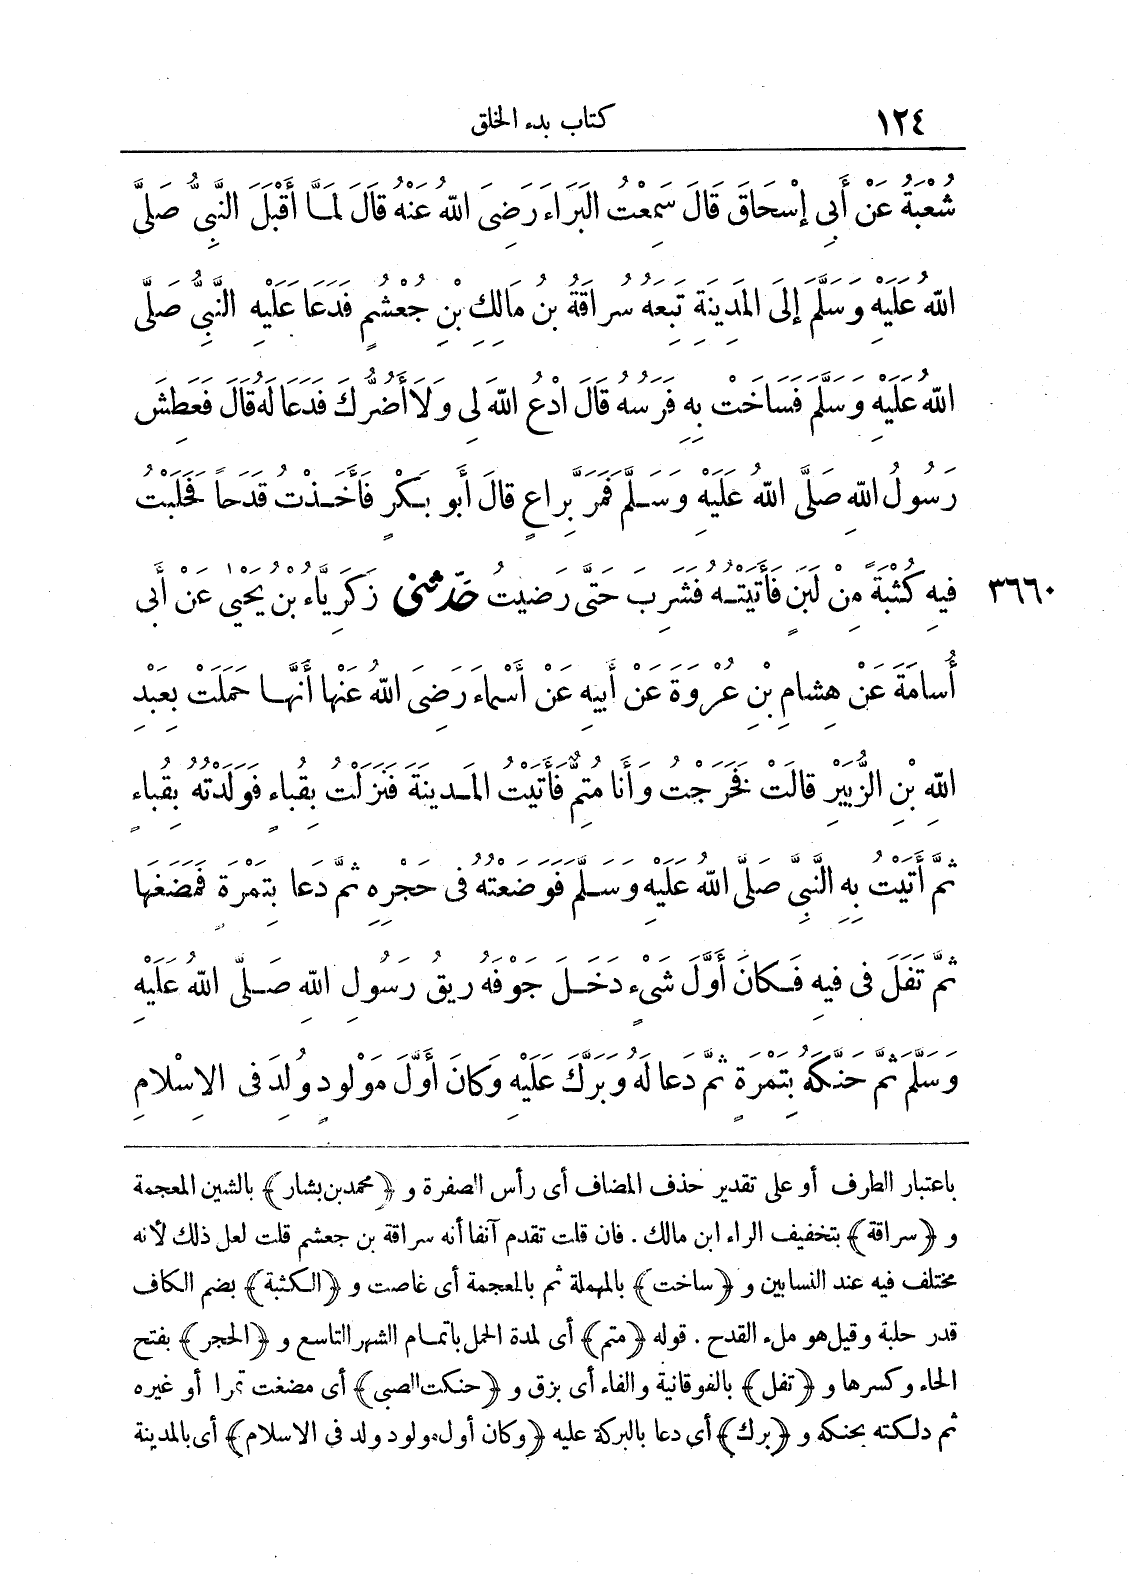 ١٢٤ كتاب بدء الخلق
شُعْبَةُ عَنْ أَبِي إِسْحَاقَ قَالَ سَمِعْتُ الْبَرَاءَ رَضِيَ اللهُ عَنْهُ قَالَ لَمَّا أَقْبَلَ النَّبِيُّ صَلَّى
اللهُ عَلَيْهِ وَسَلَّمَ إِلَى الْمَدِينَةِ تَبِعَهُ سُرَاقَةُ بْنُ مَالِكِ بْنِ جُعْشُمٍ فَدَعَا عَلَيْهِ النَّبِيُّ صَلَّى
اللهُ عَلَيْهِ وَسَلَّمَ فَسَاخَتْ بِهِ فَرَسُهُ قَالَ ادْعُ اللهَ لِي وَلَا أَضُرُّكَ فَدَعَا لَهُ قَالَ فَعَطِشَ
رَسُولُ اللهِ صَلَّى اللهُ عَلَيْهِ وَسَلَّمَ فَمَرَّ بِرَاعٍ قَالَ أَبُو بَكْرٍ فَأَخَذْتُ قَدَحاً فَحَلَبْتُ
٣٦٦٠ فِيهِ كُثْبَةً مِنْ لَبَنٍ فَأَتَيْتُهُ فَشَرِبَ حَتَّى رَضِيتُ حَدَّثَنِي زَكَرِيَّاءُ بْنُ يَحْيَى عَنْ أَبِي
أُسَامَةَ عَنْ هِشَامِ بْنِ عُرْوَةَ عَنْ أَبِيهِ عَنْ أَسْمَاءَ رَضِيَ اللهُ عَنْهَا أَنَّهَا حَمَلَتْ بِعَبْدِ
اللهِ بْنِ الزُّبَيْرِ قَالَتْ فَخَرَجْتُ وَأَنَا مُتِمٌّ فَأَتَيْتُ الْمَدِينَةَ فَنَزَلْتُ بِقُبَاءٍ فَوَلَدْتُهُ بِقُبَاءٍ
ثُمَّ أَتَيْتُ بِهِ النَّبِيَّ صَلَّى اللهُ عَلَيْهِ وَسَلَّمَ فَوَضَعْتُهُ فِي حَجْرِهِ ثُمَّ دَعَا بِتَمْرَةٍ فَمَضَغَهَا
ثُمَّ تَفَلَ فِي فِيهِ فَكَانَ أَوَّلَ شَيْءٍ دَخَلَ جَوْفَهُ رِيقُ رَسُولِ اللهِ صَلَّى اللهُ عَلَيْهِ
وَسَلَّمَ ثُمَّ حَنَّكَهُ بِتَمْرَةٍ ثُمَّ دَعَا لَهُ وَبَرَّكَ عَلَيْهِ وَكَانَ أَوَّلَ مَوْلُودٍ وُلِدَ فِي الْإِسْلَامِ
باعتبار الطرف أو على تقدير حذف المضاف أى رأس الصفرة و ﴿محمد بن بشار﴾ بالشين المعجمة
و ﴿سراقة﴾ بتخفيف الراء ابن مالك . فان قلت تقدم آنفا أنه سراقة بن جعشم قلت لعل ذلك لأنه
مختلف فيه عند النسابين و ﴿ساخت﴾ بالمهملة ثم بالمعجمة أى غاصت و ﴿الكثبة﴾ بضم الكاف
قدر حلبة وقيل هو ملء القدح . قوله ﴿متم﴾ أى لمدة الحمل باتمام الشهر التاسع و ﴿الحجر﴾ بفتح
الحاء وكسرها و ﴿تفل﴾ بالفوقانية والفاء أى بزق و ﴿حنكت الصبى﴾ أى مضغت تمرا أو غيره
ثم دلكته بحنكه و ﴿برك﴾ أى دعا بالبركة عليه ﴿وكان أول مولود ولد فى الاسلام﴾ أى بالمدينة